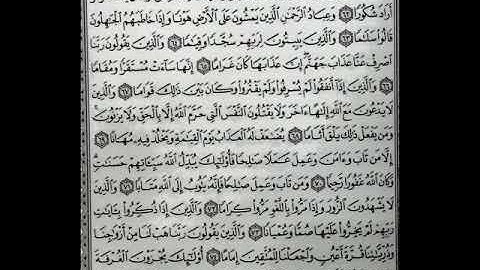 أَرَادَ شُكُورًا ٦٢ وَعِبَادُ ٱلرَّحْمَٰنِ ٱلَّذِينَ يَمْشُونَ عَلَى ٱلْأَرْضِ هَوْنًا وَإِذَا خَاطَبَهُمُ ٱلْجَٰهِلُونَ
قَالُوا۟ سَلَٰمًا ٦٣ وَٱلَّذِينَ يَبِيتُونَ لِرَبِّهِمْ سُجَّدًا وَقِيَٰمًا ٦٤ وَٱلَّذِينَ يَقُولُونَ رَبَّنَا
ٱصْرِفْ عَنَّا عَذَابَ جَهَنَّمَ إِنَّ عَذَابَهَا كَانَ غَرَامًا ٦٥ إِنَّهَا سَآءَتْ مُسْتَقَرًّا وَمُقَامًا
٦٦ وَٱلَّذِينَ إِذَآ أَنفَقُوا۟ لَمْ يُسْرِفُوا۟ وَلَمْ يَقْتُرُوا۟ وَكَانَ بَيْنَ ذَٰلِكَ قَوَامًا ٦٧ وَٱلَّذِينَ
لَا يَدْعُونَ مَعَ ٱللَّهِ إِلَٰهًا ءَاخَرَ وَلَا يَقْتُلُونَ ٱلنَّفْسَ ٱلَّتِى حَرَّمَ ٱللَّهُ إِلَّا بِٱلْحَقِّ وَلَا يَزْنُونَ ۚ
وَمَن يَفْعَلْ ذَٰلِكَ يَلْقَ أَثَامًا ٦٨ يُضَٰعَفْ لَهُ ٱلْعَذَابُ يَوْمَ ٱلْقِيَٰمَةِ وَيَخْلُدْ فِيهِۦ مُهَانًا ٦٩
إِلَّا مَن تَابَ وَءَامَنَ وَعَمِلَ عَمَلًا صَٰلِحًا فَأُو۟لَٰٓئِكَ يُبَدِّلُ ٱللَّهُ سَيِّـَٔاتِهِمْ حَسَنَٰتٍ ۗ
وَكَانَ ٱللَّهُ غَفُورًا رَّحِيمًا ٧٠ وَمَن تَابَ وَعَمِلَ صَٰلِحًا فَإِنَّهُۥ يَتُوبُ إِلَى ٱللَّهِ مَتَابًا ٧١ وَٱلَّذِينَ
لَا يَشْهَدُونَ ٱلزُّورَ وَإِذَا مَرُّوا۟ بِٱللَّغْوِ مَرُّوا۟ كِرَامًا ٧٢ وَٱلَّذِينَ إِذَا ذُكِّرُوا۟ بِـَٔايَٰتِ
رَبِّهِمْ لَمْ يَخِرُّوا۟ عَلَيْهَا صُمًّا وَعُمْيَانًا ٧٣ وَٱلَّذِينَ يَقُولُونَ رَبَّنَا هَبْ لَنَا مِنْ أَزْوَٰجِنَا
وَذُرِّيَّٰتِنَا قُرَّةَ أَعْيُنٍ وَٱجْعَلْنَا لِلْمُتَّقِينَ إِمَامًا ٧٤ أُو۟لَٰٓئِكَ يُجْزَوْنَ ٱلْغُرْفَةَ